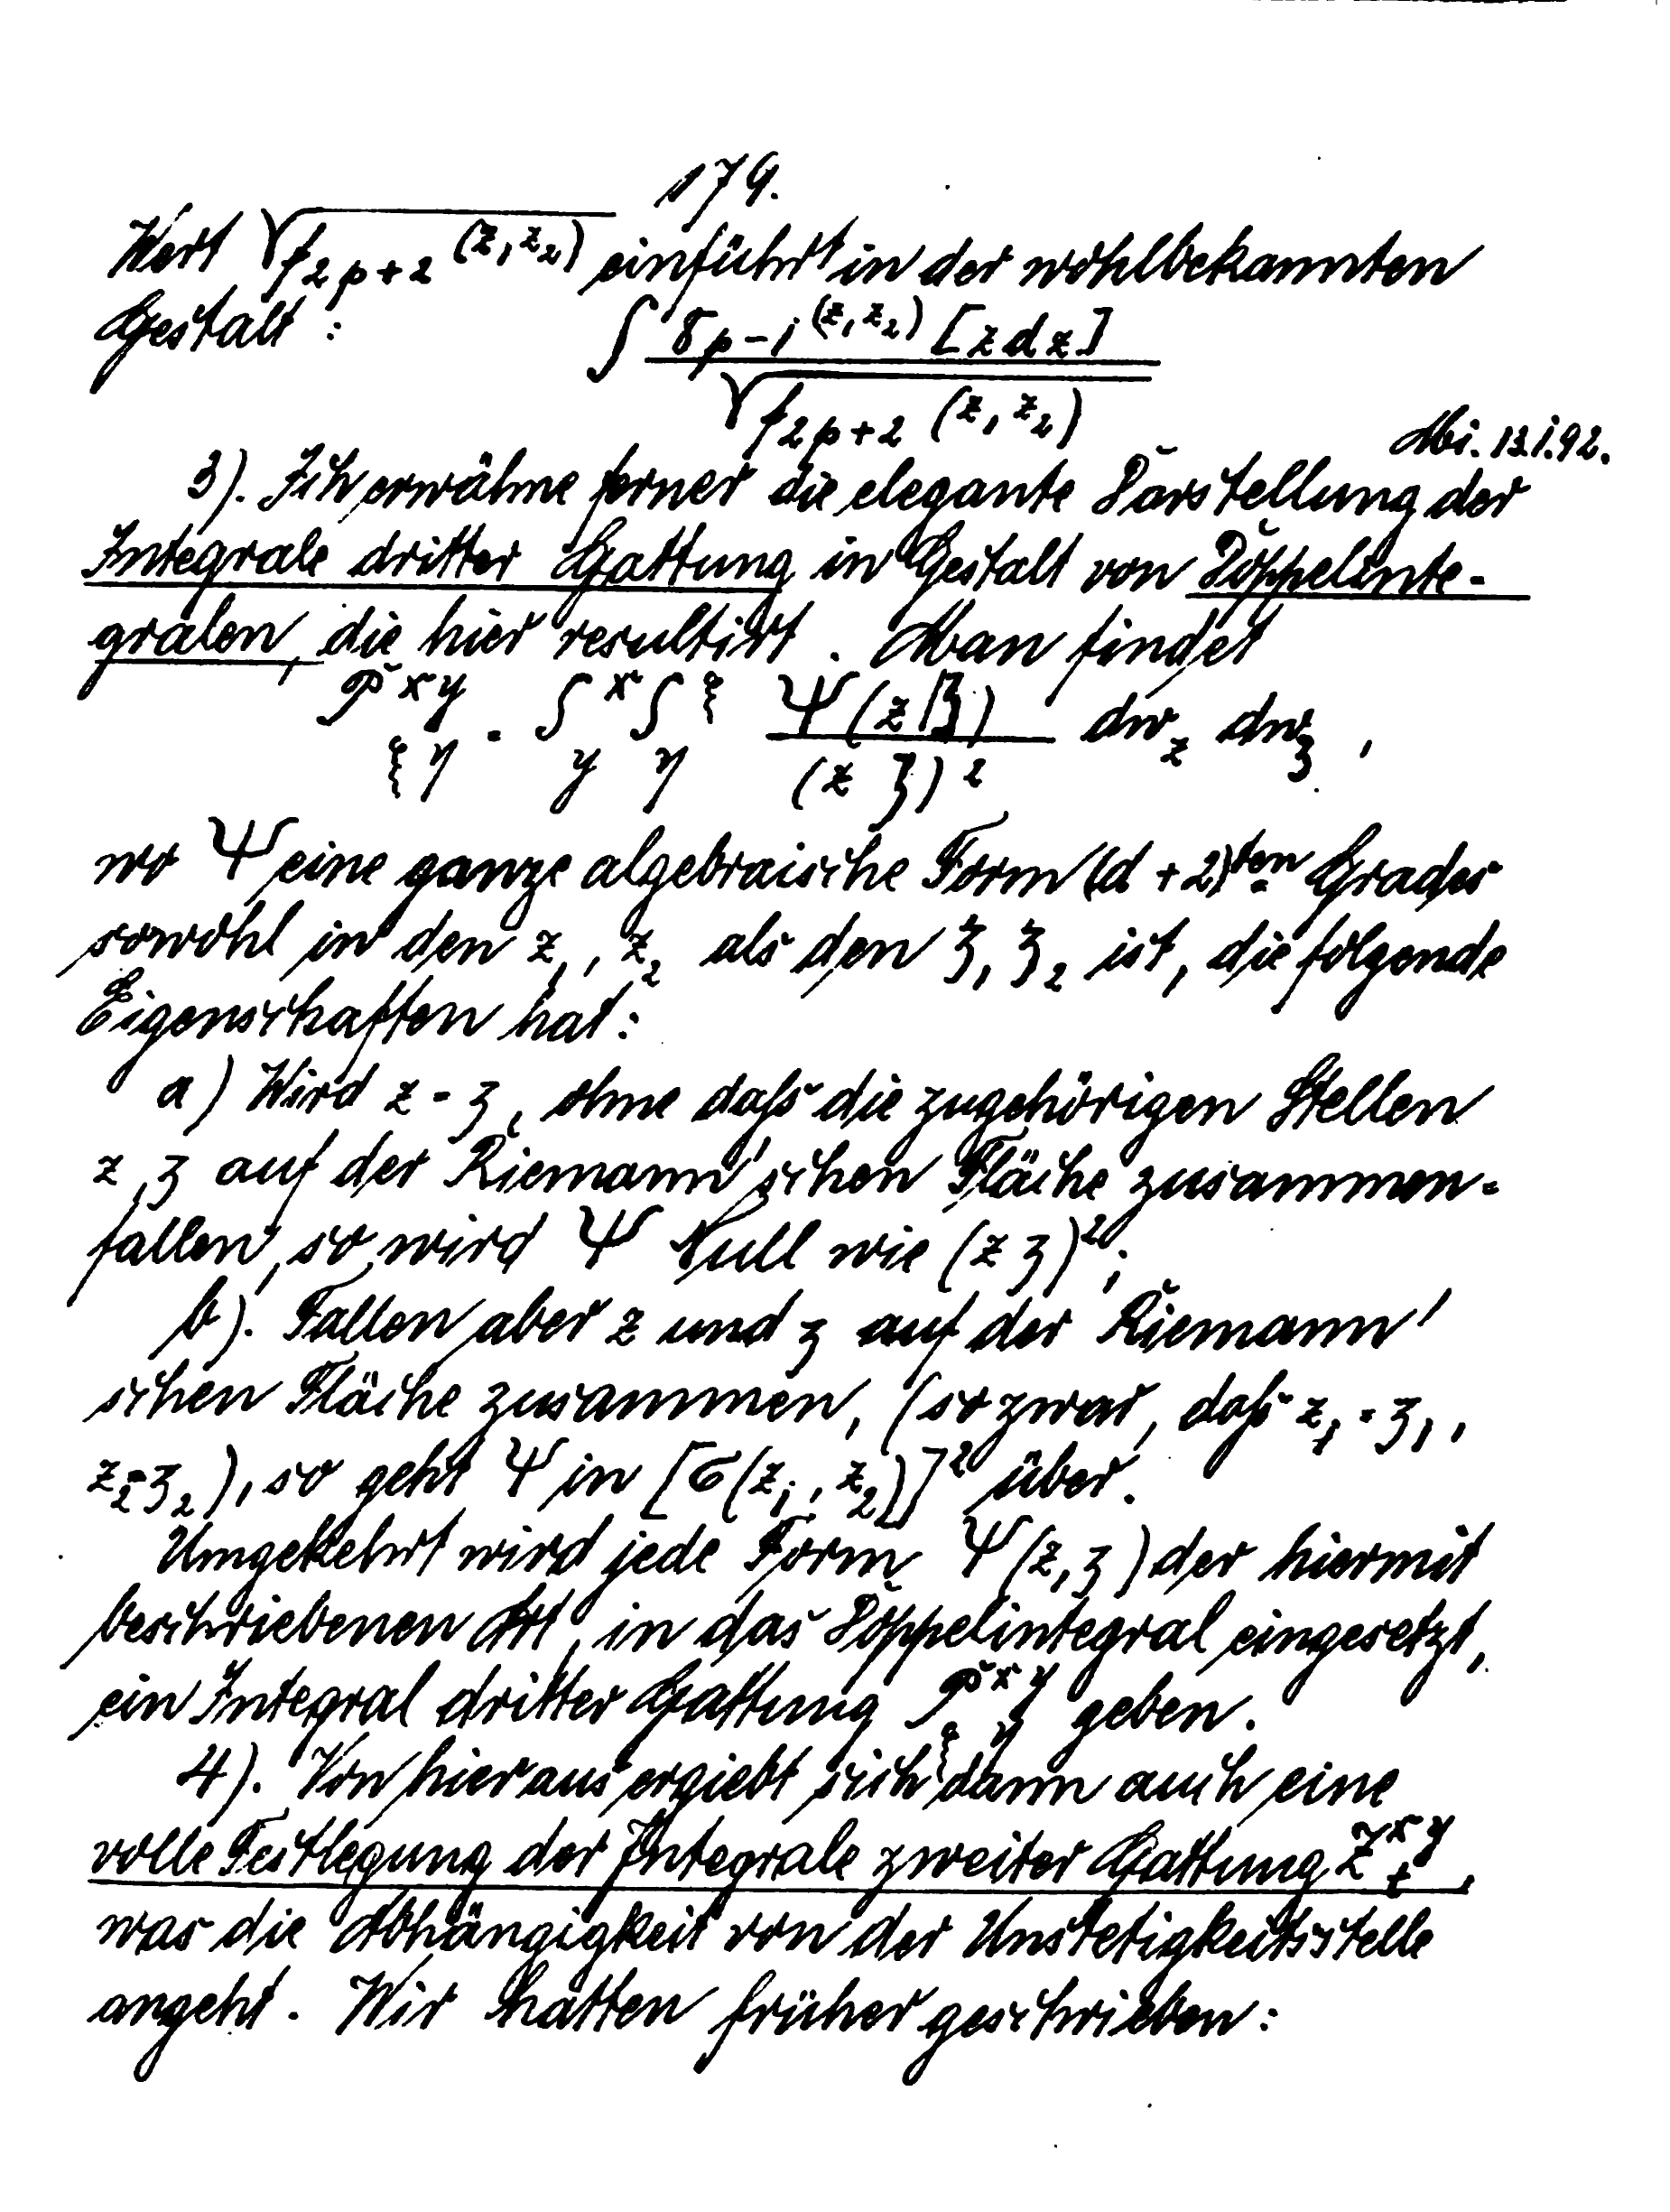 179.
Wert √f₂ₚ₊₂(z₁z₂) einführt in der wohlbekannten
Gestalt: ∫ γₚ₋₁(z₁z₂)[z dz]
√f₂ₚ₊₂(z₁z₂)
Mi. 13.I.92.
3). Ich erwähne ferner die elegante Darstellung der
Integrale dritter Gattung in Gestalt von Doppelinte-
gralen, die hier resultirt. Man findet
P^{xy}_{ξη} = ∫_y^x ∫_η^ξ Ψ(z|ζ)/(z ζ)² dw_z dw_ζ,
wo Ψ eine ganze algebraische Form (d+2)ten Grades
sowohl in den z₁, z₂ als den ζ₁ ζ₂ ist, die folgende
Eigenschaften hat:
a) Wird z = ζ, ohne daß die zugehörigen Stellen
z, ζ auf der Riemann'schen Fläche zusammen-
fallen, so wird Ψ Null wie (z ζ)²;
b). Fallen aber z und ζ auf der Riemann'
schen Fläche zusammen, (so zwar, daß z₁ = ζ₁,
z₂ = ζ₂), so geht Ψ in [σ(z₁, z₂)]² über.
Umgekehrt wird jede Form Ψ(z, ζ) der hiermit
beschriebenen Art, in das Doppelintegral eingesetzt,
ein Integral dritter Gattung P^{xy}_{ξη} geben.
4). Von hier aus ergiebt sich dann auch eine
volle Festlegung der Integrale zweiter Gattung Z^{xy}_t,
was die Abhängigkeit von der Unstetigkeitsstelle
angeht. Wir hatten früher geschrieben: